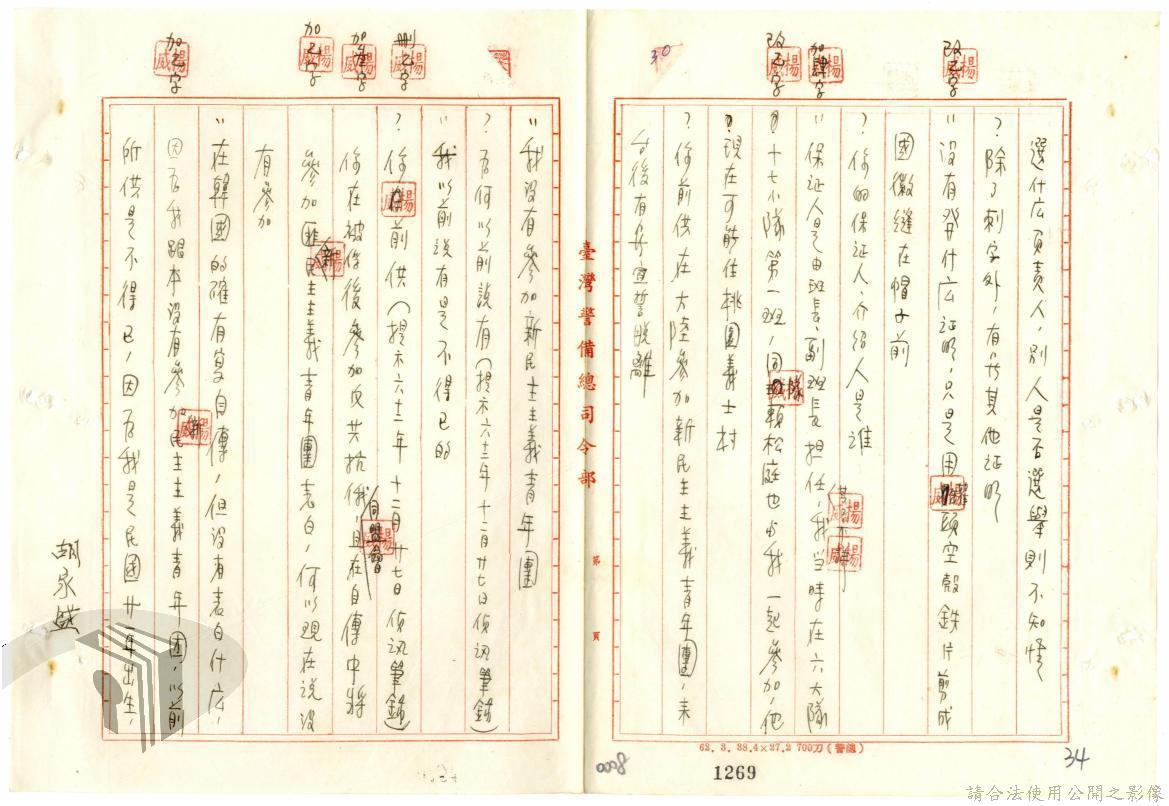 改乙字
加肆字
改乙字
30
選什広負責人，別人是否選舉則不知情
？除了刺字外，有無其他证明
"沒有發什広证明，只是用罐頭空殼鉄片剪成
國徽縫在帽子前
？你的保证人、介紹人是谁
"保证人是由班長、副班長担任，我当時在六大隊
十七小隊第一班，同隊賴松庭也与我一起參加，他
現在可能住桃園義士村
？你前供在大陸參加新民主主義青年團，未
台後有無宣誓脱離
臺灣警備總司令部
第 頁
62. 3. 38.4×27.2 700刀（警總）
1269
0008
34
刪乙字
加叁字
加乙字
加乙字
"我沒有參加新民主主義青年團
？為何以前說有（提示六十二年十二月廿七日偵訊筆錄）
"我以前說有是不得已的
？你前供（提示六十二年十二月廿七日偵訊筆錄）
你在被俘後參加反共抗俄同盟會，且在自傳中將
參加匪新民主主義青年團表白，何以現在說沒
有參加
"在韓國的確有寫自傳，但沒有表白什広，
因為我跟本沒有參加新民主主義青年團，以前
所供是不得已，因為我是民國廿一年出生，
胡永盛
請合法使用公開之影像